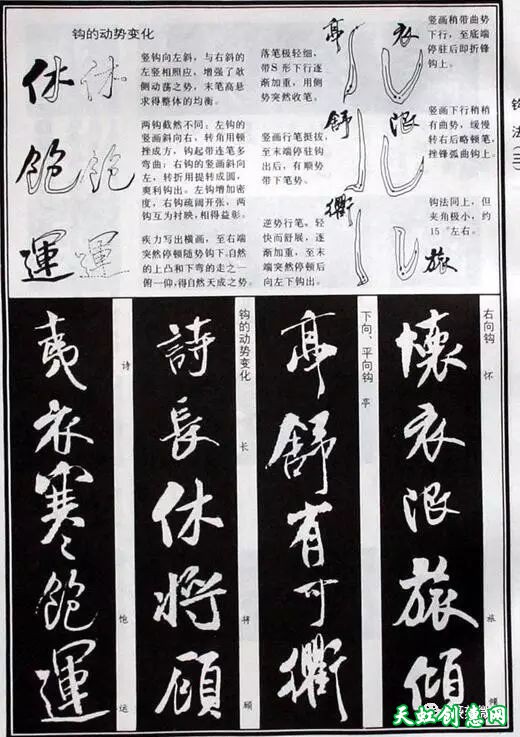 钩的动势变化
休
竖钩向左斜，与右斜的
左竖相照应，增强了欹
侧动荡之势，末笔高悬
求得整体的均衡。
飽
两钩截然不同：左钩的
竖画斜向右，转角用顿
挫成方，钩起带连笔多
弯曲；右钩的竖画斜向
左，转折用提转成圆，
奥利钩出。左钩增加密
度，右钩疏阔开张，两
钩互为封映，相得益彰。
運
疾力写出横画，至右端
突然停顿随势钩下。自然
的上凸和下弯的走之一
俯一仰，得自然天成之势。
落笔极轻细，
带S形下行逐
渐加重，用侧
势突然收笔。
亭
竖画行笔挺拔，
至末端停驻钩
出后，有顺势
带下笔势。
舒
逆势行笔。轻
快而舒展，逐
渐加重，至末
端突然停顿后
向左下钩出。
衢
衣
竖画稍带曲势
下行，至底端
停驻后即折锋
钩上。
限
竖画下行稍稍
有曲势，缓慢
转右后略顿笔，
挫锋弧曲钩上。
旅
钩法同上，但
夹角极小，约
15°左右。
钩法(三)
右向钩 怀
旅
倾
懷衣限旅傾
下向、平向钩 亭
亭舒有可衢
钩的动势变化
长
将
顾
詩長休將顧
诗
饱
运
夷衣寒飽運
天虹创意网